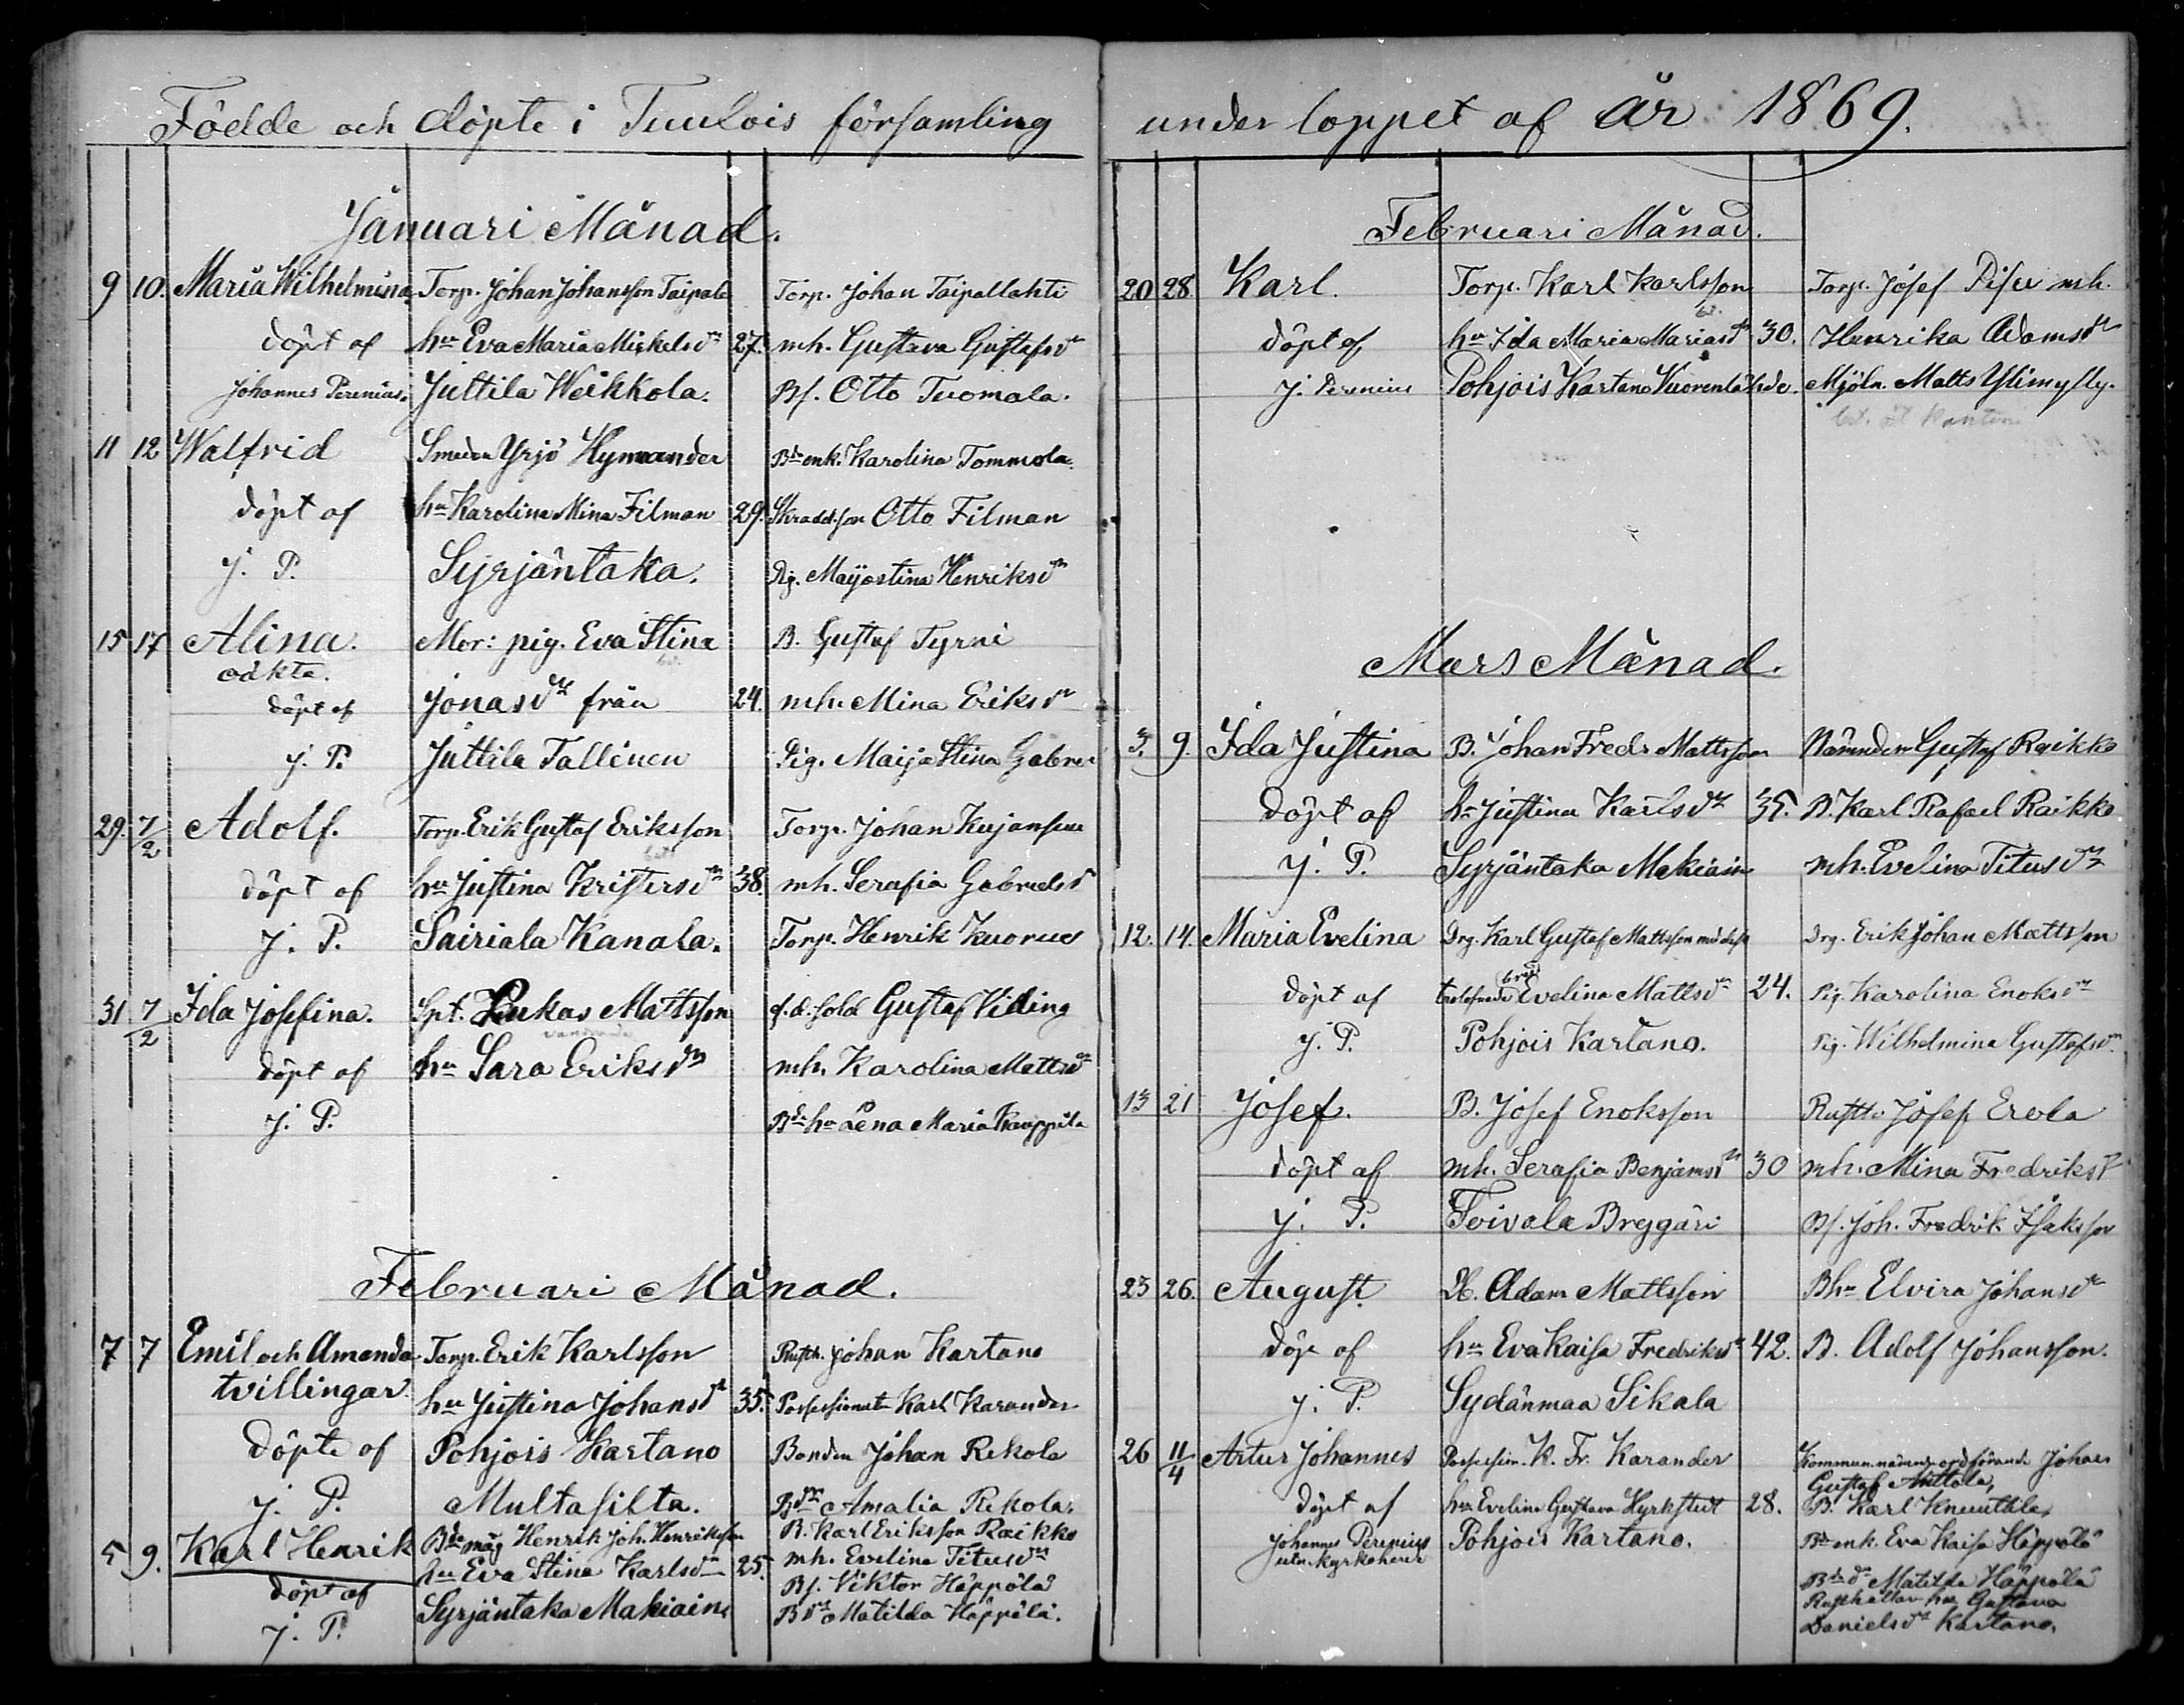 Födde och döpte i Tuulois församling
Januari Månad.
9 10. Maria Wilhelmina Torp. Johan Johansson Taipale Torp. Johan Taipallahti
döpt af hu Eva Maria Mickelsdr 27. mh. Gustava Gustafsdr
Johannes Perenius. Juttila Weikkola. Bs. Otto Tuomola.
11 12 Walfrid Smeden Yrjö Hymander Bde enk. Karolina Tommola.
döpt af hu Karolina Mina Filman 29. Skradd.son Otto Filman
J. P. Syrjäntaka. Pig. Maijastina Henriksdr
15 17 Alina. Mor: pig. Eva Stina B. Gustaf Tyrni
oäkta.
döpt af Jonasdr från 24. mh. Mina Eriksdr
J. P. Juttila Tallinen Pig. Maija Stina
29. 7/2 Adolf. Torp. Erik Gustaf Eriksson Torp. Johan Kujansuu
döpt af hu Justina Kristersdr 38. mh. Serafia Gabrielsdr
J. P. Sairiala Kanala. Torp. Henrik Kuorus
31 7/2 Ida Josefina. Spt. Lukas Mattsson f.d. sold Gustaf Viding
döpt af hu Sara Eriksdr mh. Karolina Mattsdr
J. P. Bde hu Lena Maria Kauppila
Februari Månad.
7 7 Emil och Amanda Torp. Erik Karlsson Rusth. Johan Kartano
tvillingar. hu Justina Johansdr 35. Possessionat Karl Karander
döpte af Pohjois Kartano Bonden Johan Rekola
J. P. Multasilta. Bdr Amalia Rekola.
5 9. Karl Henrik Bde måg Henrik Joh. Henriksson B. Karl Eriksson Raikko
hu Eva Stina Karlsdr 25. mh. Evelina Titusdr
döpt af Bs. Viktor Häppölä
J. P. Syrjäntaka Makiaine Bdr Matilda Häppölä.
under loppet af år 1869.
Februari Månad.
20 28. Karl. Torp. Karl Karlsson Torp. Josef Pisu mh.
döpt af hu Ida Maria Mariasdr 30. Henrika Adamsdr
J. Perenius Pohjois Kartano Kuorenlähde. Mjöln. Matts Ylimylly.
Mars Månad.
3. 9. Ida Justina B. Johan Fredr. Mattsson Nämndem Gustaf Raikko
döpt af hu Justina Karlsdr 35. B. Karl Rafael Raikko
J. P. Syrjäntaka Makiain mh. Evelina Titusdr
12. 14. Maria Evelina Drg. Karl Gustaf Mattsson med dess Drg. Erik Johan Mattsson
döpt af trolofvade brud Evelina Mattsdr 24. Pig. Karolina Enoksdr
J. P. Pohjois Kartano. Pig. Wilhelmina Gustafsdr.
13 21 Josef. B. Josef Enoksson Rusth. Josef Erola
döpt af mh. Serafia Benjamsdr 30 mh. Mina Fredriksdr
J. P. Toivala Bryggäri Bs. Joh. Fredrik Isaksson
23 26. August. Adam Mattsson Bhu Elvira Johansdr
döp af hu Eva Kaisa Fredriksdr 42. B. Adolf Johansson.
J. P. Sydänmaa Sikala
26 11/4 Artur Johannes Possession. K. Fr. Karander Kommun.nämnd. ordförande Johan
Gustaf Anttola,
döpt af hu Evelina Gustava Hyrkstedt 28. B. Karl Knuuttila,
Johannes Perenius Pohjois Kartano. Bde enk. Eva Kaisa Häppölä
utn. kyrkoherde
Bde dr Matilda Häppölä
Rusthållar hu Gustava
Danielsdr Kartano.